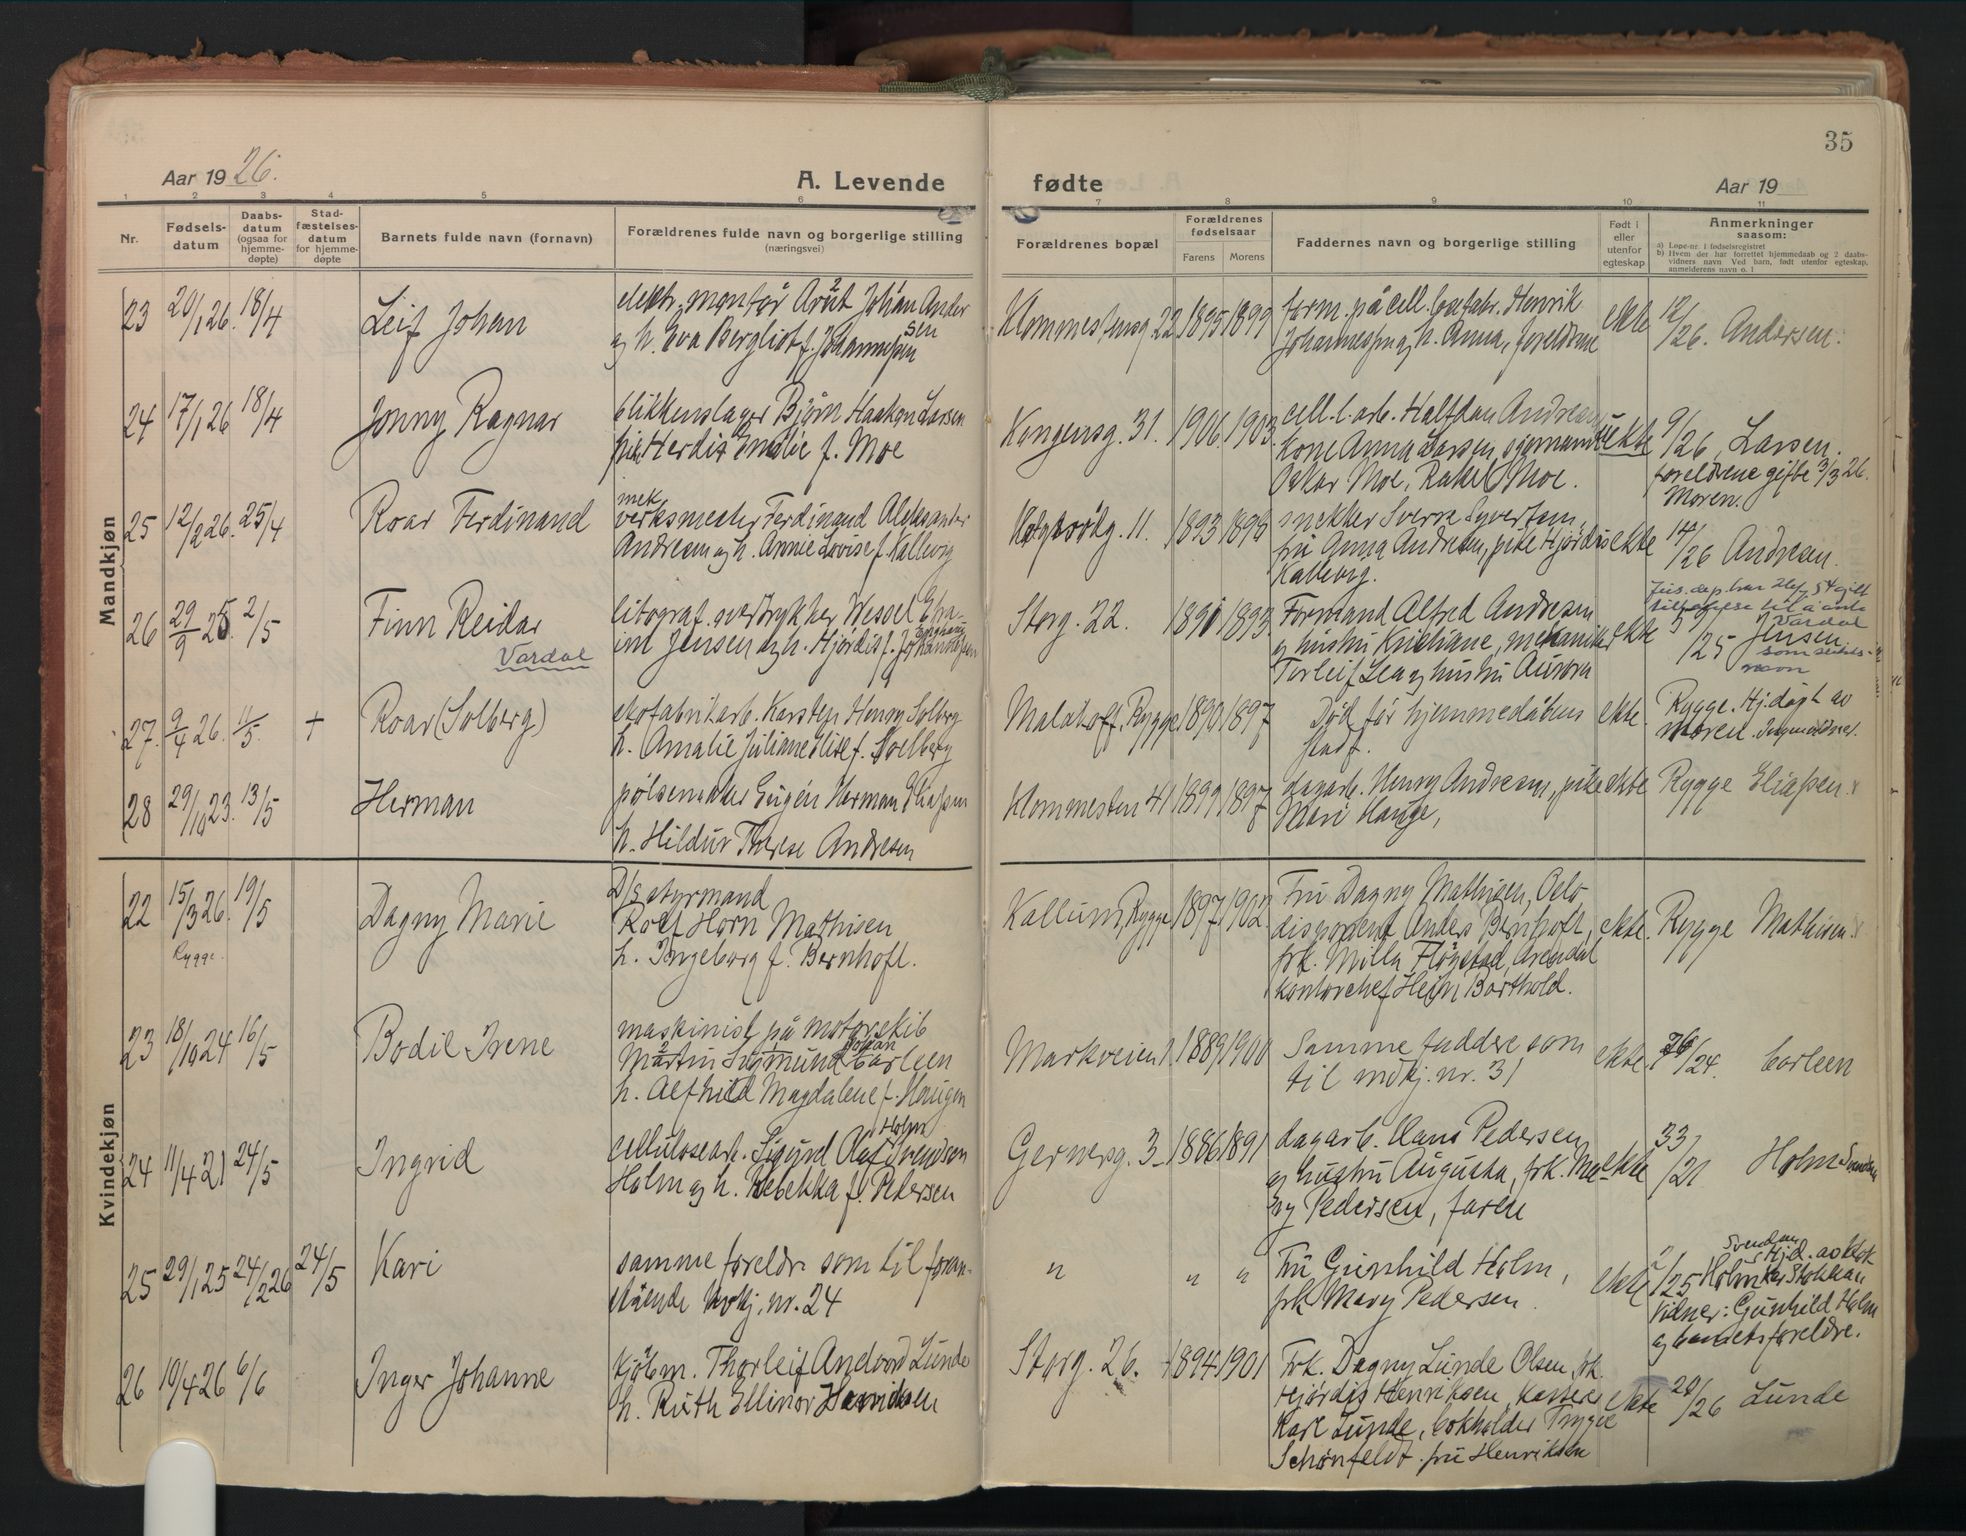 35
Aar 1926.
A. Levende
fødte
Aar 19
1 2 3 4 5 6 7 8 9 10 11
Nr.
Fødsels-
datum
Daabs-
datum
(ogsaa for
hjemme-
døpte)
Stad-
fæstelses-
datum
for hjemme-
døpte
Barnets fulde navn (fornavn)
Forældrenes fulde navn og borgerlige stilling
(næringsvei)
Forældrenes bopæl
Forældrenes
fødselsaar
Farens
Morens
Faddernes navn og borgerlige stilling
Født i
eller
utenfor
egteskap
Anmerkninger
saasom:
a) Løpe-nr. i fødselsregistret
b) Hvem der har forrettet hjemmedaab og 2 daabs-
vidners navn Ved barn, født utenfor egteskap,
anmelderens navn o. l
Mandkjøn
23 20/1 26. 18/4 Leif Johan
elektr. montør Johan Ander
sen
og h. Eva Bergliot f. Johannessen
Klommesteng. 22. 1895 1899
form. på cell. Henrik
Johannessen og h. Anna, foreldrene
ekte 12/26. Andersen.
24 17/1 26 18/4 Jonny Ragnar
blikkenslager Bjørn Haakon Larsen
Herdis Emilie f. Moe
Kongensg. 31. 1906. 1903.
cell. arb. Halfdan Andreas
kone Anna Larsen,
Oskar Moe, Rakel Moe.
uekte 9/26, Larsen.
foreldrene gifte 3/3 26.
Moren.
25 12/2 26. 25/4 Roar Ferdinand
mek
verksmester Ferdinand Aleksander
Andresen og h. Annie Lovise f. Kallevig
11. 1893 1896
snekker Sverre Syversen,
fru Anna Andresen, pike Hjördis
Kallevig.
ekte 14/26 Andresen.
26 29/9 25. 2/5 Finn Reidar
Vardal
litograf. overtrykker Wessel Efra-
im Jensen og h. Hjördis f. Johannessen
Storg. 22. 1893
Formand Alfred Andresen
og hustru Kristiane, mekaniker
Torleif Lea og hustru Aurora
ekte
Jus. dep. har 54 gitt
tillatelse til å anta
Vardal
/25 Jensen.
som slekts-
navn
27. 9/4 26. 11/5 + Roar (Solberg)
skofabrikarb. Karsten Henry Solberg
h. Amalie Juliane Elise f. Soelberg
Malakoff, Rygge 1890 1897
Död før hjemmedåbens
stadf.
ekte. Rygge. Hj. døpt av
moren.
28 29/10 23. 13/5 Herman
pølsemaker Eugen Herman Eliassen
h. Hildur Therese Andresen
Klommesten 41 1899
dagarb. Henry Andresen, pike
Mari Hauge,
ekte Rygge Eliassen.
Kvindekjøn
22 15/3 26. 19/5 Dagny Marie
Rygge.
D/S styrmand
Rolf Horn Mathisen
h. Ingeborg f. Bernhoft.
Kallum, Rygge 1897 1902.
Fru Dagny Mathisen, Oslo
disponent Anders Bernhoft,
frk. Milla Fløystad, Arendal
kontorchef Hein Barthold.
ekte. Rygge Mathisen.
23 18/10 24 16/5 Bodil Irene
maskinist på motorskib
Johan
Martin Sigmund Carleen
h. Alfhild Magdalene f. Haugen
Markveien 1. 1889 1900
Samme faddere som
til mdkj. nr. 31
ekte. /24. Carleen
24 11/4 21 24/5 Ingrid
Holm
cellulosearb. Sigurd Olaf Svendsen
Holm og h. Rebekka f. Pedersen
Gernersg. 3 1886 1891
dagarb. Hans Pedersen
og hustru Augusta, frk. Ma-
ry Pedersen, faren
ekte 33/21 Holm Svendsen
25 29/1 25 24/2 26 24/5 Kari
samme foreldre som til foran-
stående kvkj. nr. 24
" " "
Fru Gunhild Holm,
frk Mary Pedersen.
ekte /25 Holm
Svendsen
Hjd. av
Stokkan
Vidner: Gunhild Holm
og barnets foreldre.
26 10/4 26 6/6 Inger Johanne
kjöbm. Thorleif Andvord Lunde
h. Ruth Ellinor Henriksen
Storg. 26. 1894 1901
Frk. Dagny Lunde Olsen, frk.
Hjördis Henriksen, kasserer
Karl Lunde, bokholder Trygve
Schönfeldt. fru Henriksen
ekte 20/26 Lunde